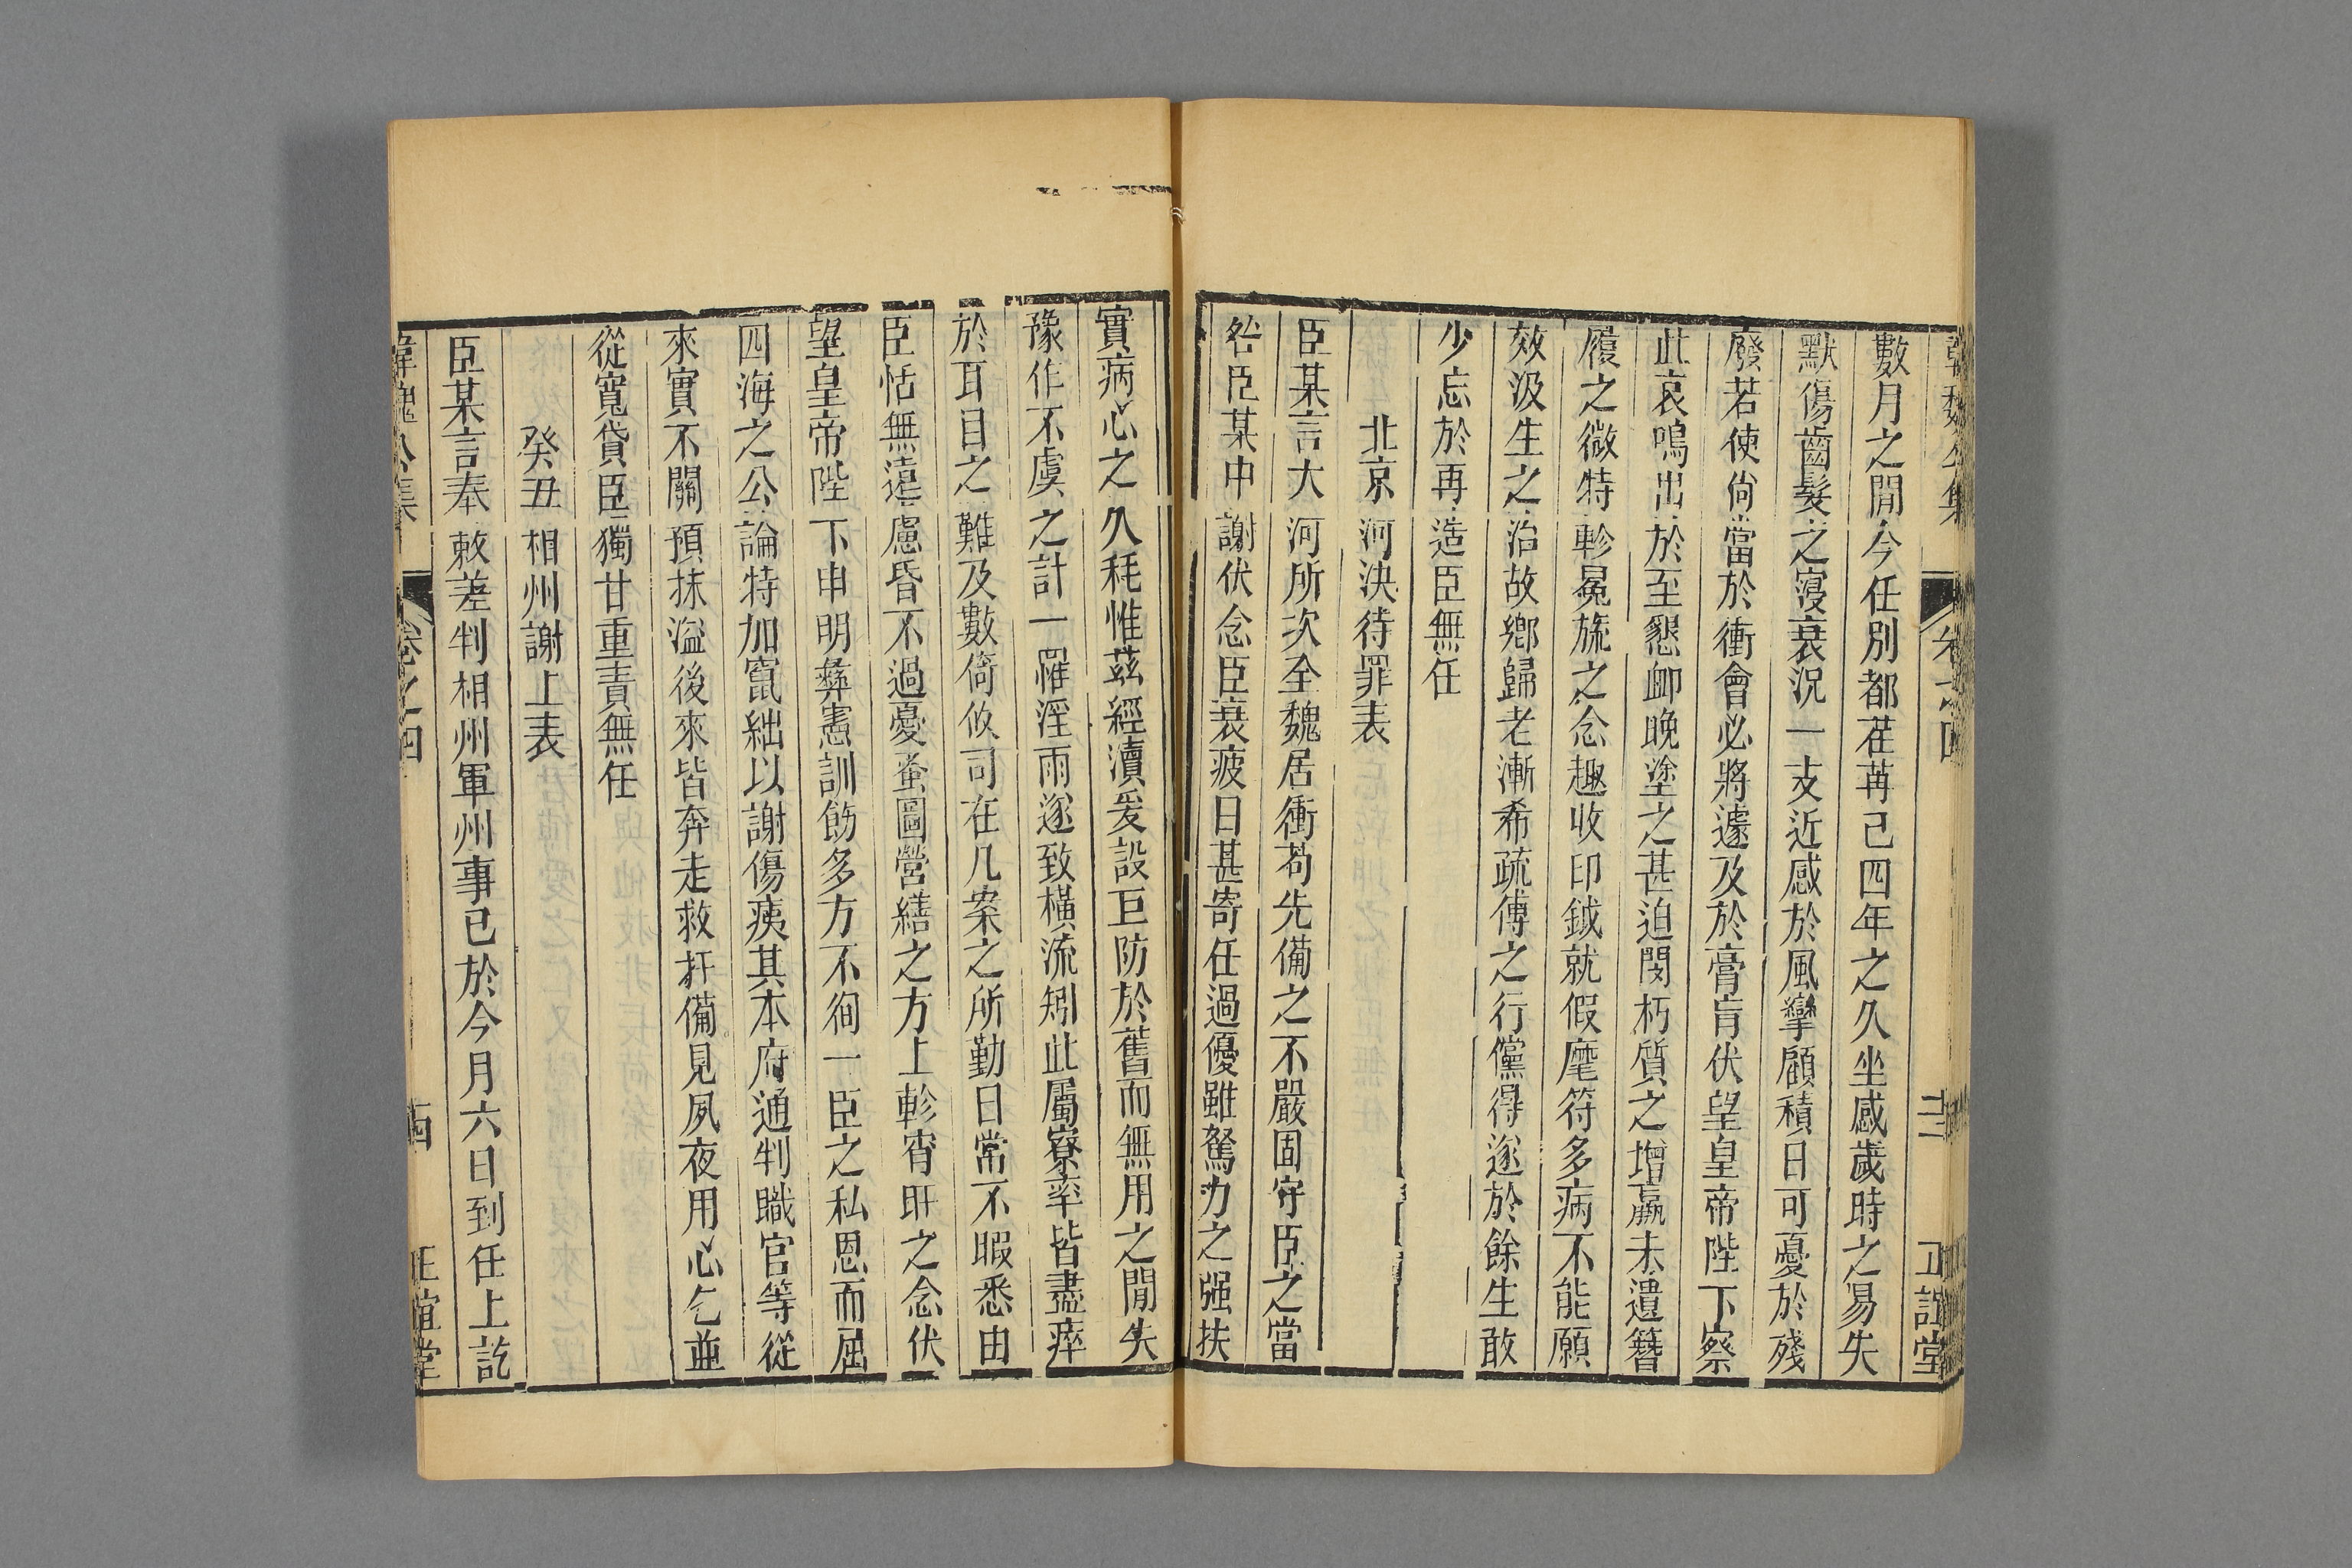 韓魏公集 卷之四 三 正誼堂
數月之閒今任別都荏苒已四年之久坐感歲時之易失
默傷齒髮之寖衰況一支近感於風攣顧積日可憂於殘
廢若使尙當於衝會必將遽及於膏肓伏望皇帝陛下察
此哀鳴出於至懇卹晚塗之甚迫閔朽質之增羸未遺簪
履之微特軫冕旒之念趣收印鉞就假麾符多病不能願
效汲生之治故鄕歸老漸希疏傅之行儻得遂於餘生敢
少忘於再造臣無任
北京河決待罪表
臣某言大河所次全魏居衝苟先備之不嚴固守臣之當
咎臣某中謝伏念臣衰疲日甚寄任過優雖駑力之强扶
實病心之久耗惟茲經瀆爰設巨防於舊而無用之閒失
豫作不虞之計一罹淫雨遂致橫流矧此屬寮率皆盡瘁
於耳目之難及數倚攸司在几案之所勤日常不暇悉由
臣恬無遠慮昏不過憂蚤圖營繕之方上軫宵旰之念伏
望皇帝陛下申明彝憲訓飭多方不徇一臣之私恩而屈
四海之公論特加竄絀以謝傷痍其本府通判職官等從
來實不關預抹溢後來皆奔走救扞備見夙夜用心乞並
從寬貸臣獨甘重責無任
癸丑相州謝上表
臣某言奉敕差判相州軍州事已於今月六日到任上訖
韓魏公集 卷之四 四 正誼堂